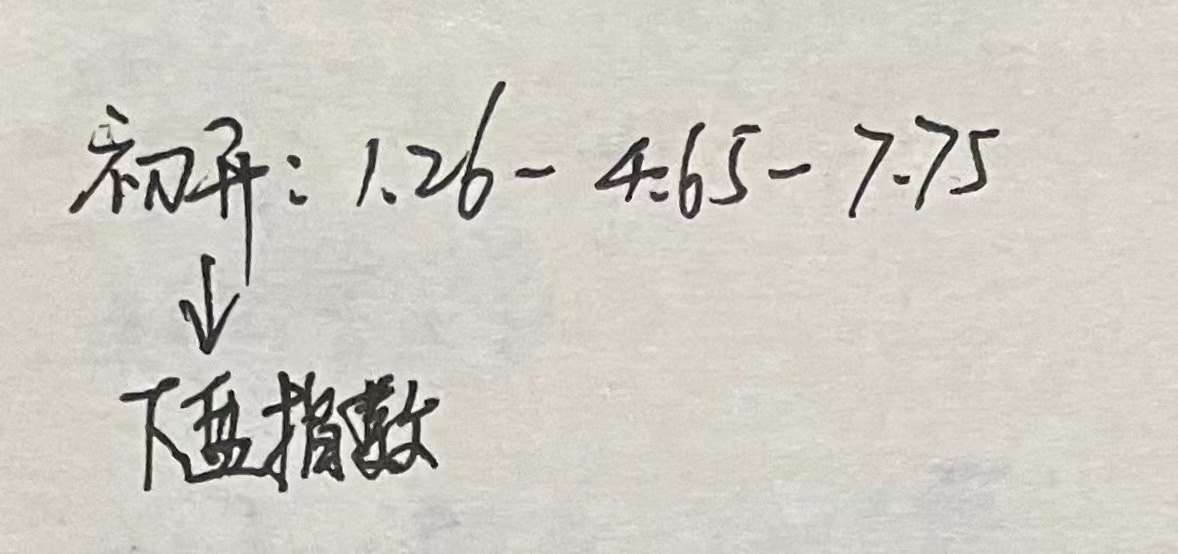 初开：1.26- 4.65- 7.75
↓
下盘指数